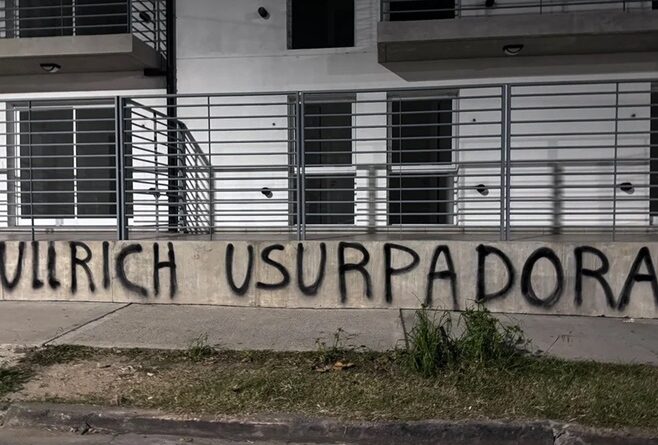 ULLRICH USURPADORA